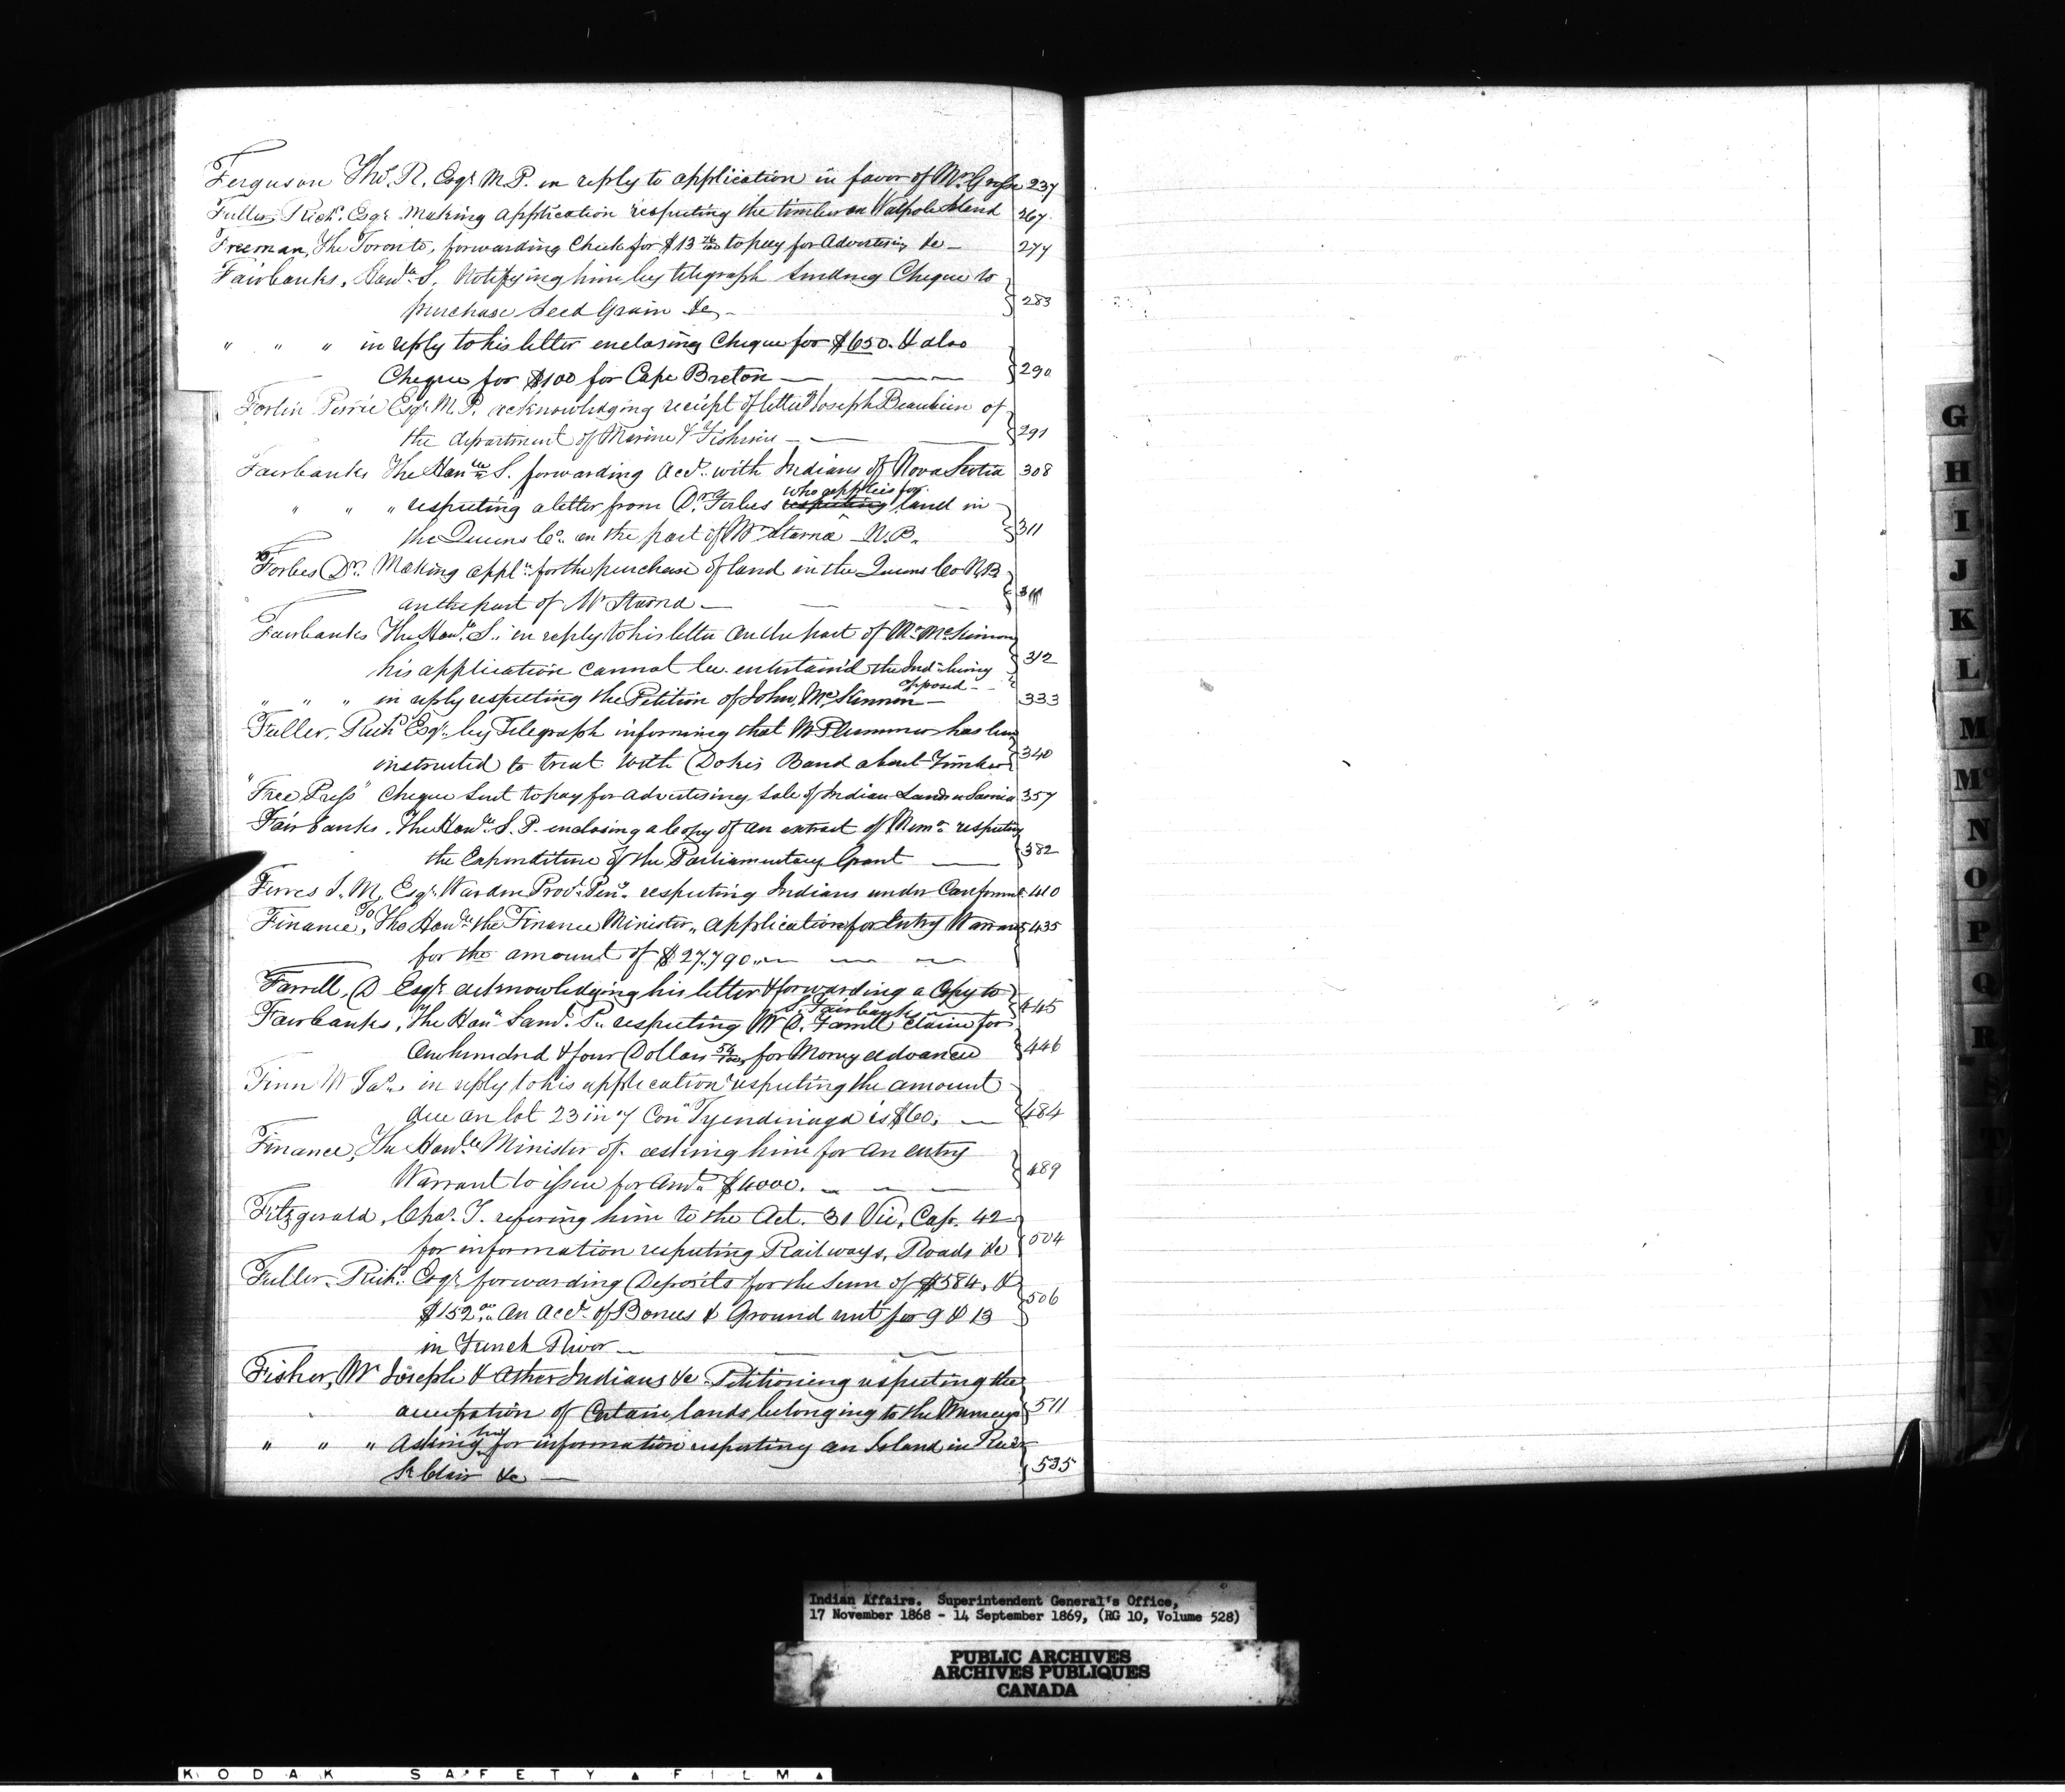 Ferguson Thos. R. Esqr. M.P. in reply to application in favor of Mr. 237
Fuller, Richd. Esqr. Making application respecting the timber on Walpole Island 267
Freeman, The Toronto, forwarding Check for $13 to pay for Advertising &c 277
Fairbanks, Honble S. Notifying him by telegraph sending Cheque to
purchase Seed Grain &c 283
" " " in reply to his letter enclosing Cheque for $650. & also
Cheque for $100 for Cape Breton 290
Fortin Perrie Esqr. M.P. acknowledging receipt of letter Joseph Beaubien of
the department of Marine & Fisheries 291
Fairbanks The Honble S. forwarding Acct. with Indians of Nova Scotia 308
" " " respecting a letter from Dr. Forbes respecting who applies for land in
the Queens Co. on the part of Mr N.B. 311
Forbes Dr. Making appln. for the purchase of land in the Queens Co N.B.
on the part of Mr 311
Fairbanks The Honl. S. in reply to his letter on the part of Mr. McKinnon
his application cannot be entertain'd the Inds. being opposed 312
" " " in reply respecting the Petition of John McKinnon 333
Fuller, Richd Esqr. by Telegraph informing that Mr Plummer has been
instructed to treat with Dokis Band about Timber 340
"Free Press" Cheque sent to pay for advertising sale of Indian Lands Sarnia 357
Fairbanks, The Honble S. P. enclosing a Copy of an extract of Memo. respecting
the Expenditure of the Parliamentary Grant 382
Ferres J. M. Esqr. Warden Provl. Peny. respecting Indians under Confinmt. 410
Finance, To The Honble the Finance Minister, application for Entry Warrant 435
for the amount of $27,790
Farrell, D Esqr. acknowledging his letter & forwarding a Copy to S. Fairbanks 445
Fairbanks, The Hon Saml. P. respecting Mr D. Farrell claim for
One hundred & four Dollars 54/100, for Money advanced 446
Finn Mr Jas. in reply to his application respecting the amount
due on lot 23 in 7 Con Tyendinaga is $60. 484
Finance, The Honble Minister of. asking him for an entry
Warrant to issue for Amt. $4000. 489
Fitzgerald, Chas. T. refering him to the Act. 31 Vic, Cap. 42
for information respecting Railways, Roads &c 504
Fuller, Richd. Esqr. forwarding Deposits for the sum of $584. &
$152. on Acct. of Bonus & Ground rent for 9 & 13
in French River 506
Fisher, Mr Joseph & other Indians &c Petitioning respecting the
occupation of Certain lands belonging to the 511
" " " Asking him for information respecting an Island in River
St Clair &c 535
G
H
I
J
K
L
M
Mc
N
O
P
Q
R
S
T
U
V
Indian Affairs. Superintendent General's Office,
17 November 1868 - 14 September 1869, (RG 10, Volume 528)
PUBLIC ARCHIVES
ARCHIVES PUBLIQUES
CANADA
KODAK SAFETY FILM